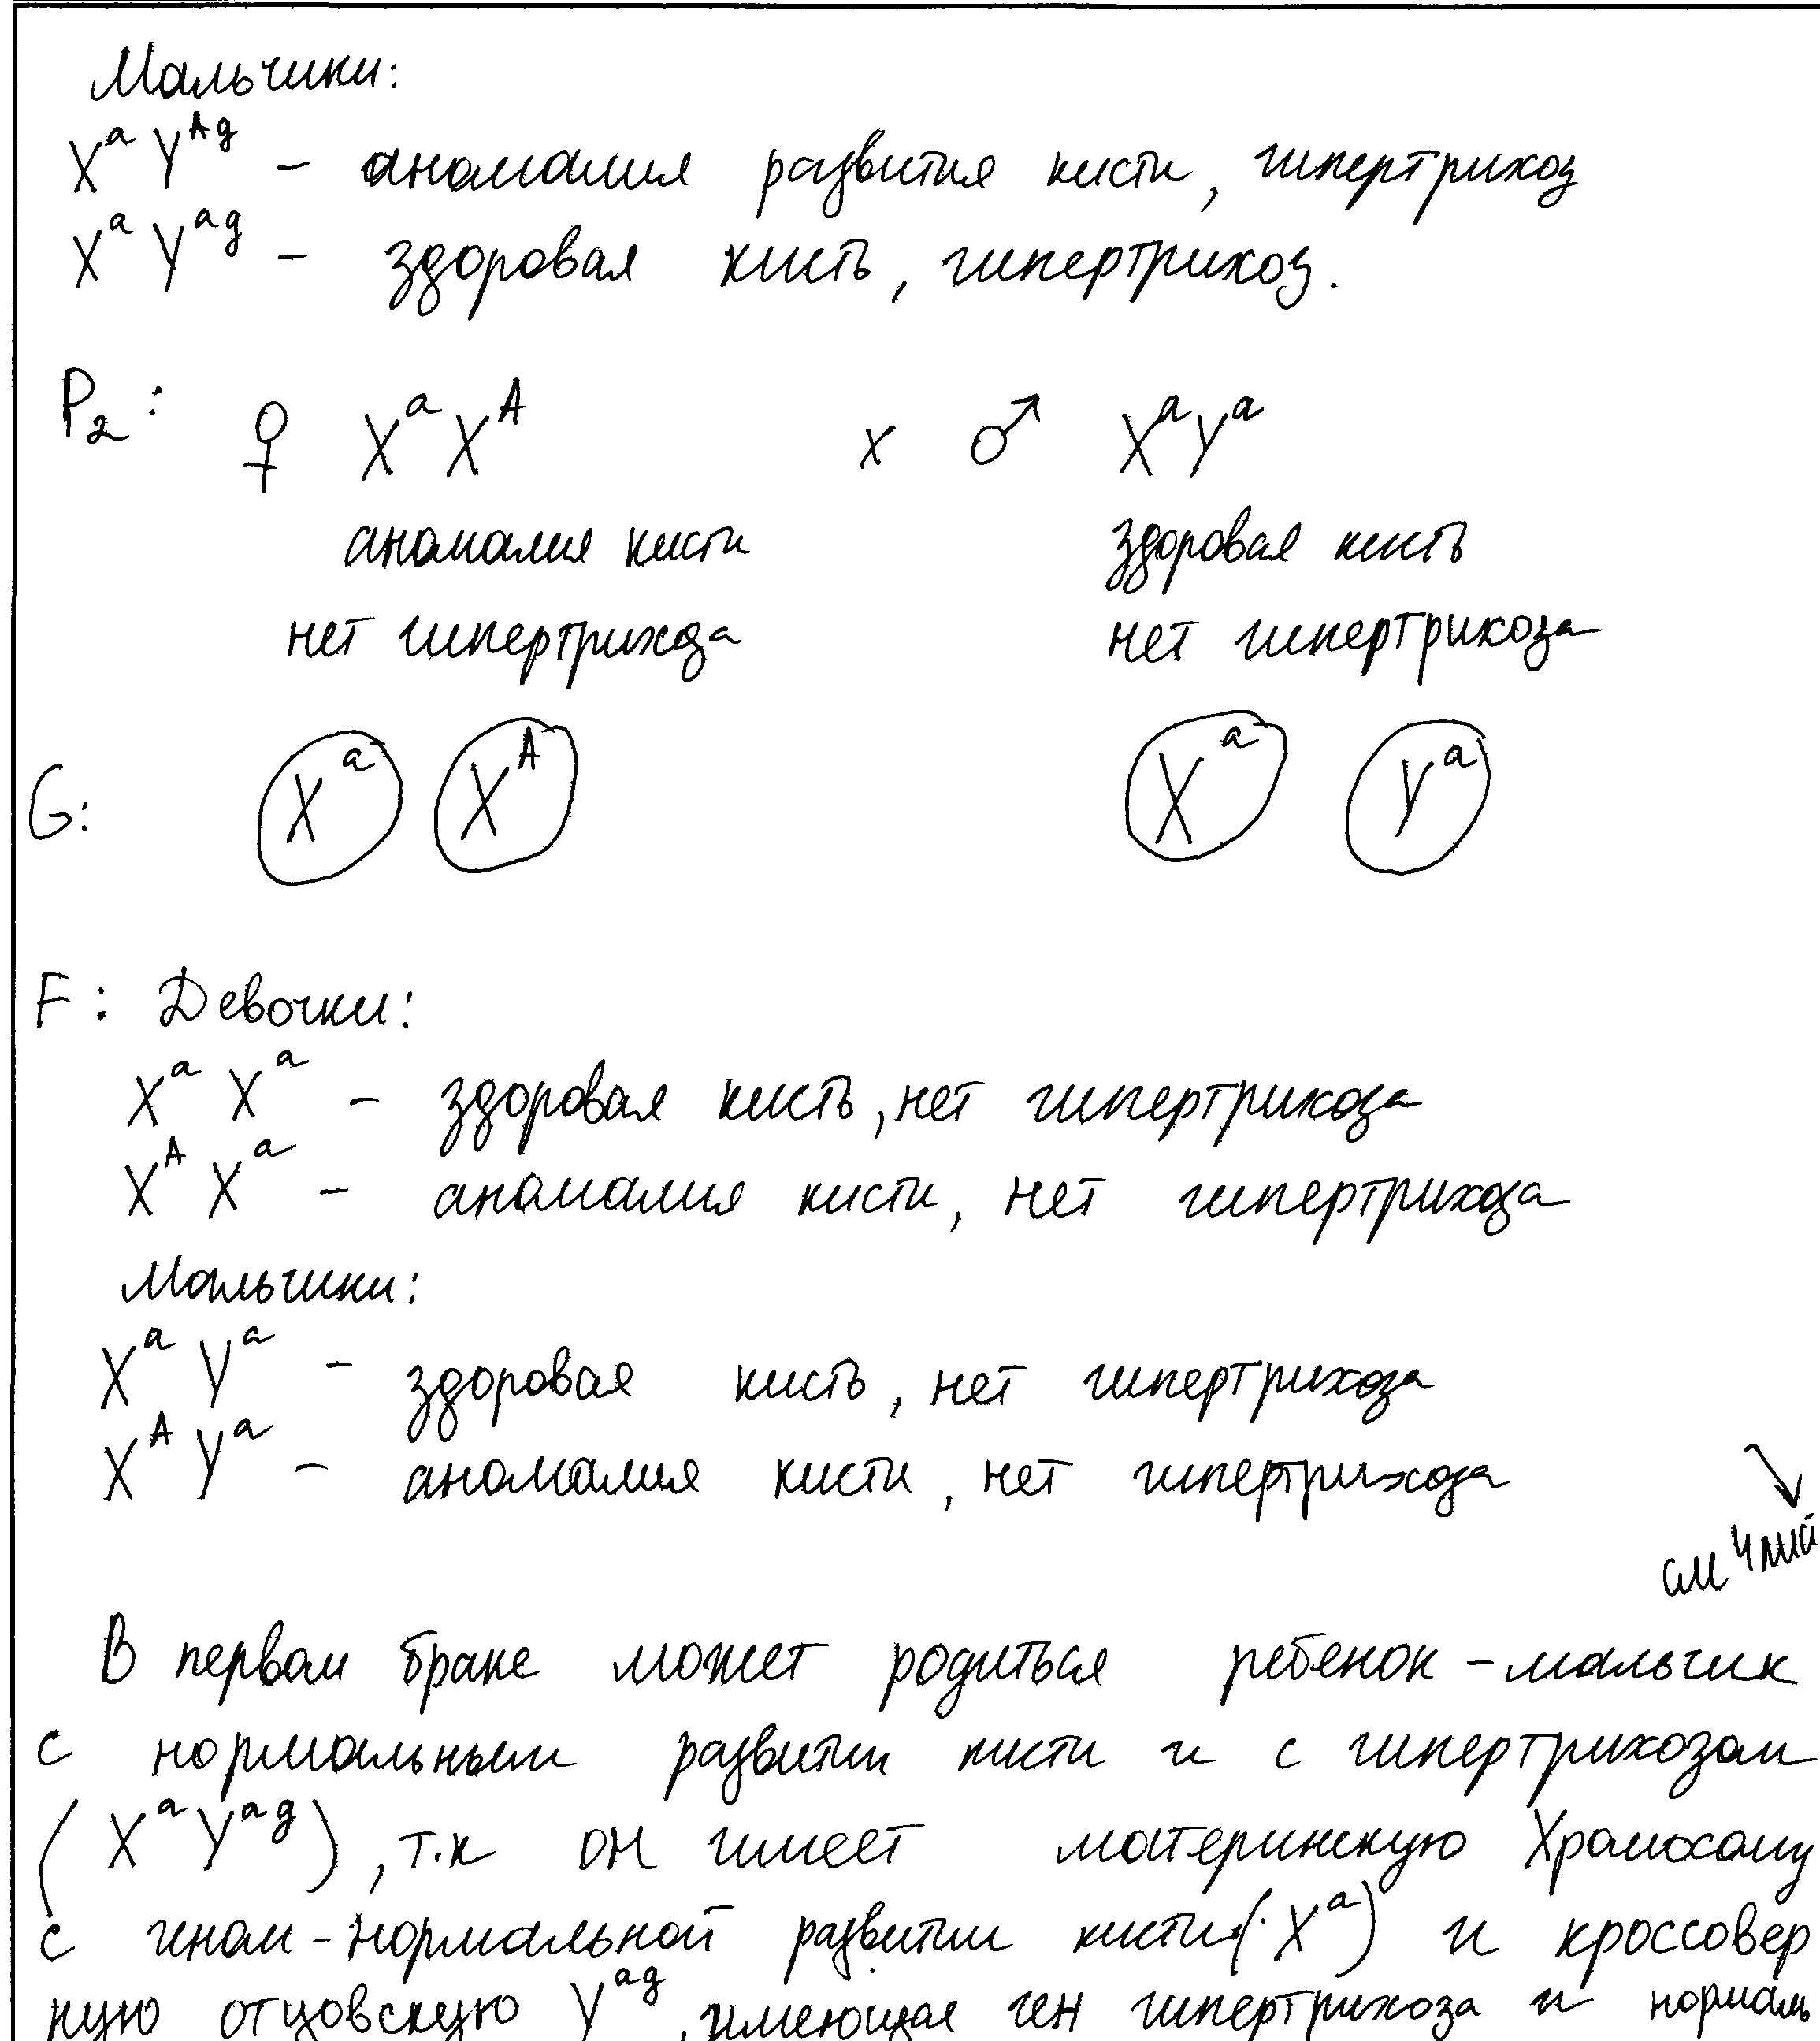 Мальчики:
X^a Y^Ag – аномалия развития кисти, гипертрихоз
X^a Y^ag – здоровая кисть, гипертрихоз.
P₂: ♀ X^a X^A x ♂ X^a Y^a
аномалия кисти здоровая кисть
нет гипертрихоза нет гипертрихоза
G: X^a X^A X^a Y^a
F: Девочки:
X^a X^a – здоровая кисть, нет гипертрихоза
X^A X^a – аномалия кисти, нет гипертрихоза
Мальчики:
X^a Y^a – здоровая кисть, нет гипертрихоза
X^A Y^a – аномалия кисти, нет гипертрихоза
↘
см
В первом браке может родиться ребенок – мальчик
с нормальным развитии кисти и с гипертрихозом
(X^a Y^ag), т.к он имеет материнскую Хромосому
с геном – нормальной развитии кисти (X^a) и кроссовер
ную отцовскую Y^ag, имеющая ген гипертрихоза и нормаль